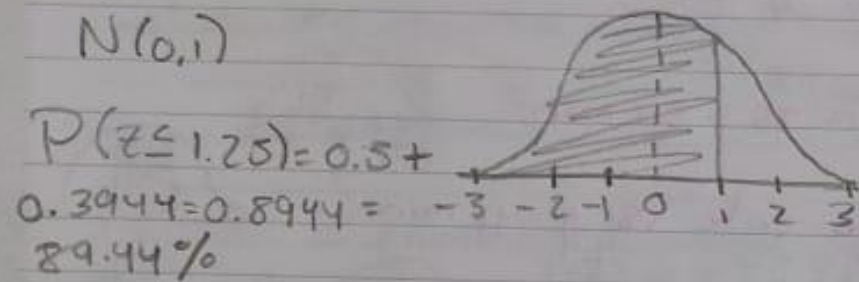 N(0,1)
P(z≤1.25)=0.5+
0.3944=0.8944=
89.44%
-3 -2 -1 0 1 2 3